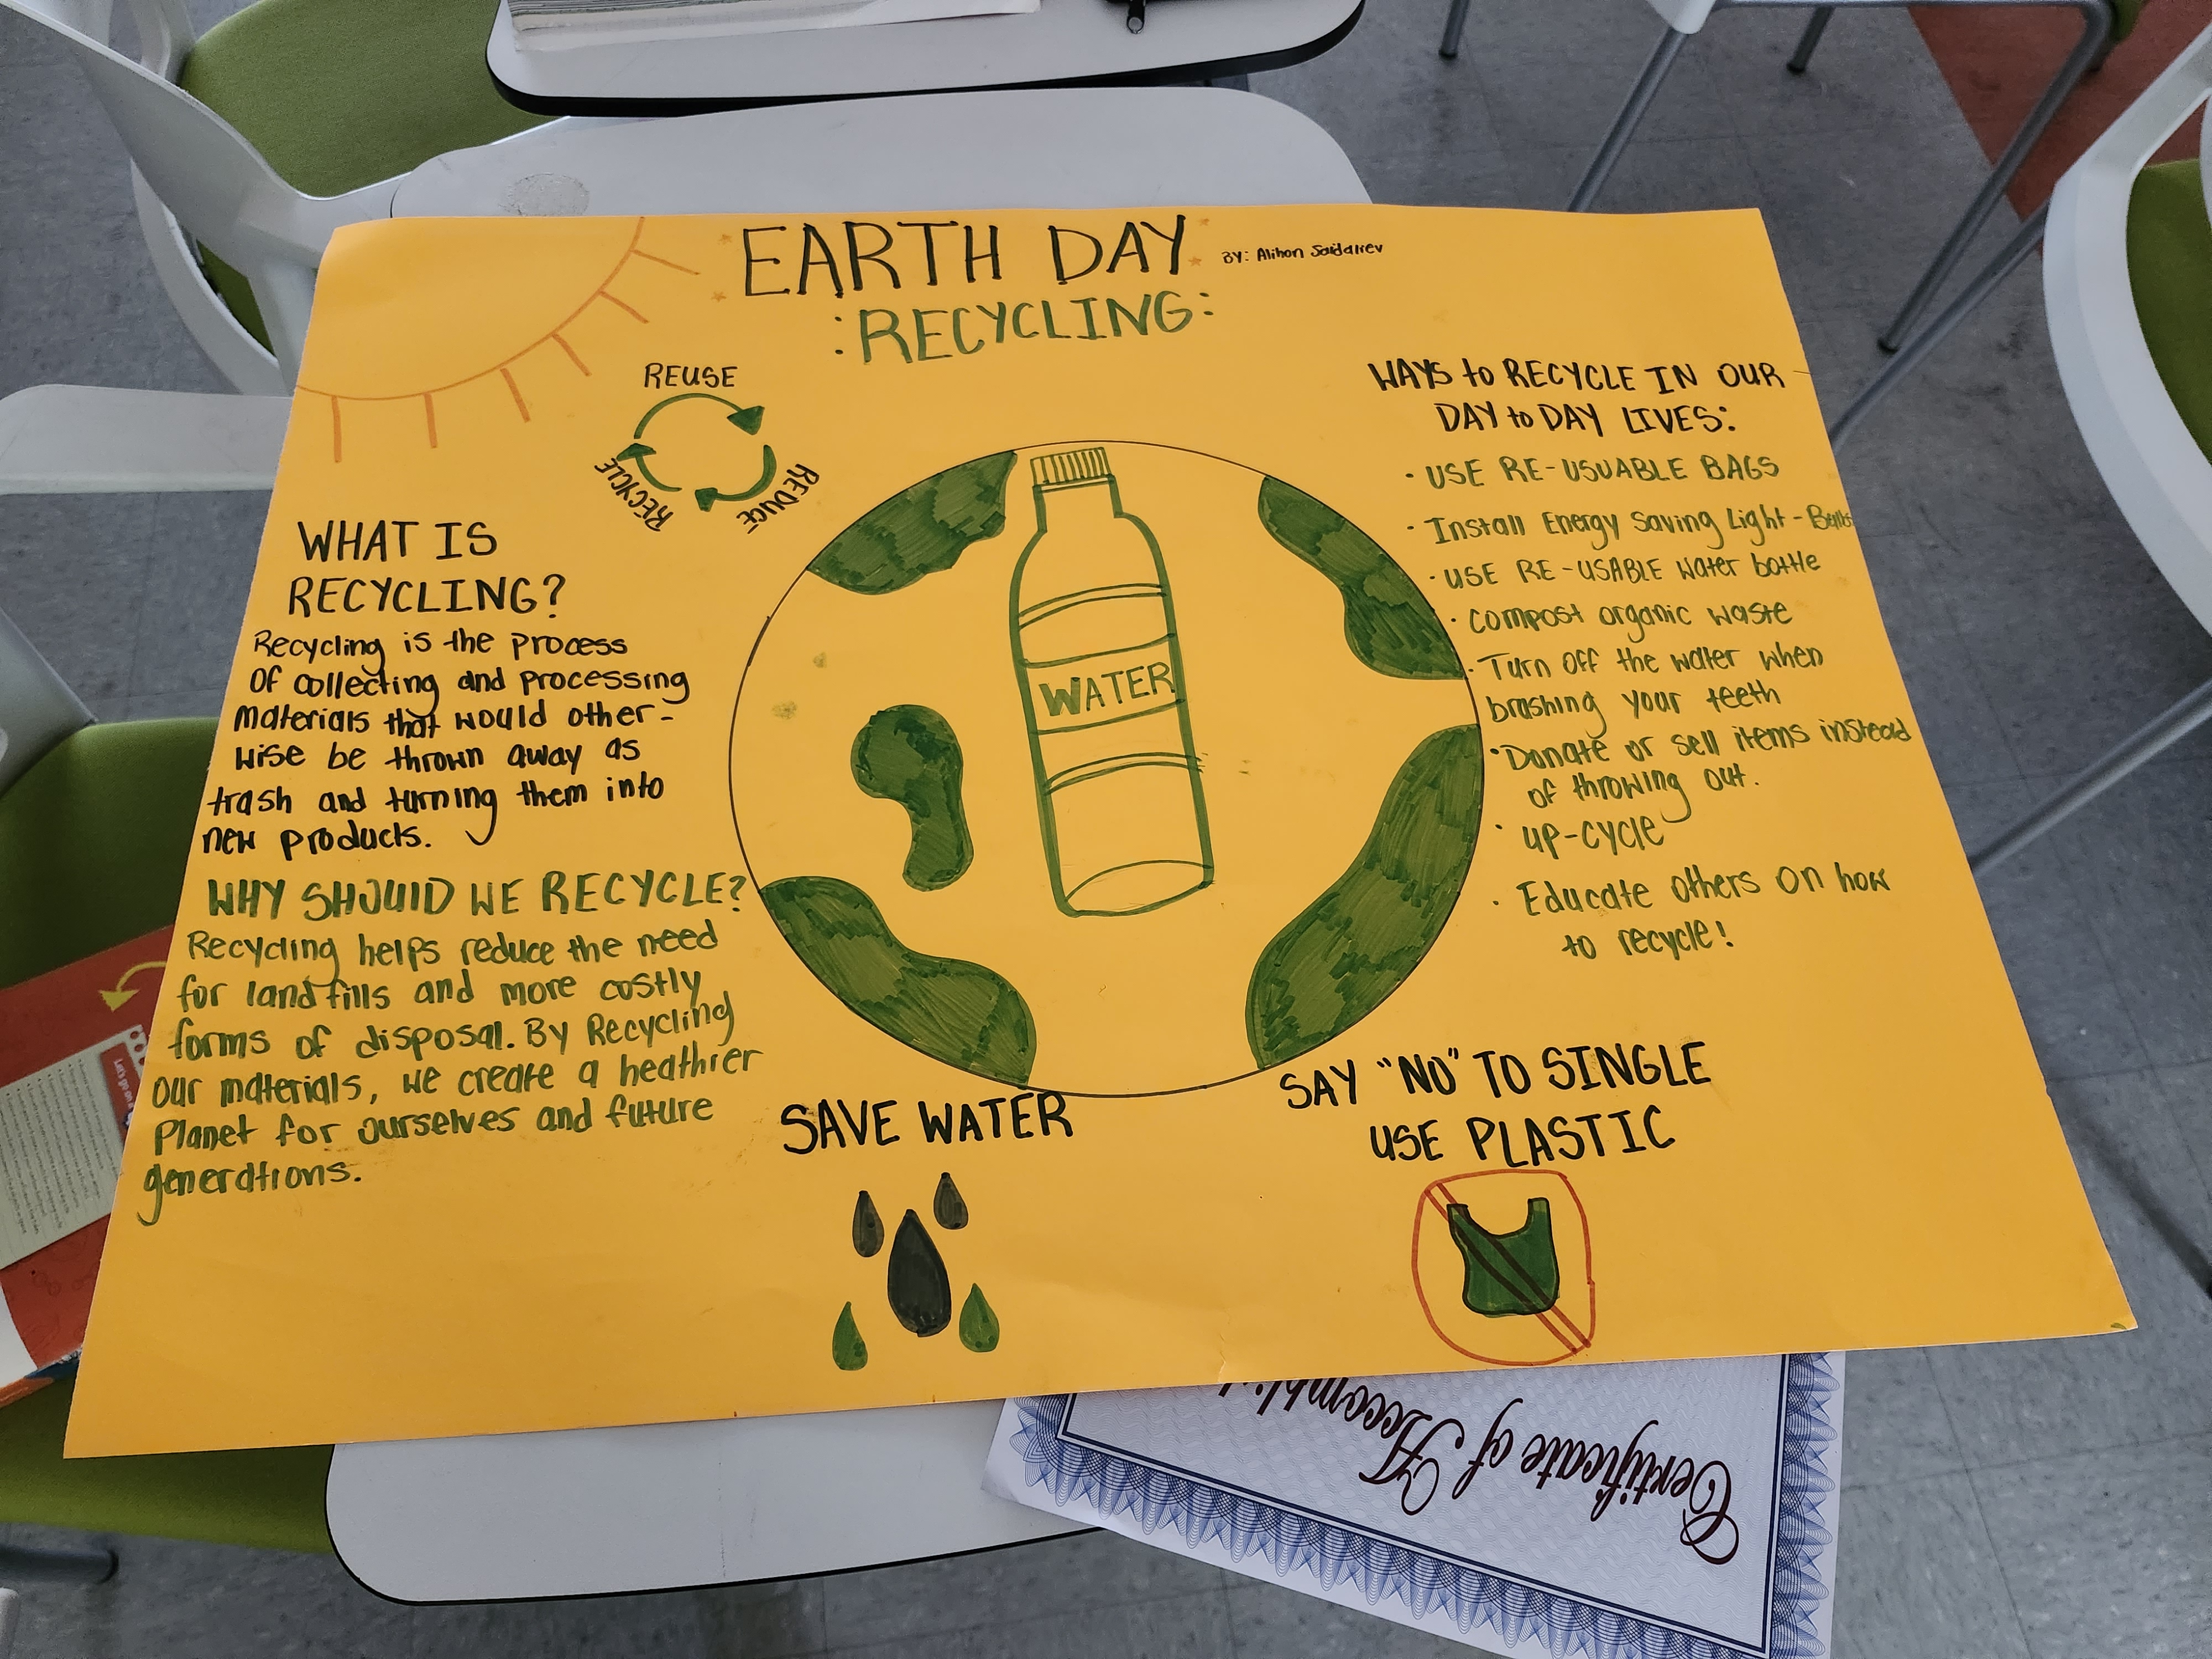 EARTH DAY
BY: Alihon Saidaliev
:RECYCLING:
REUSE
REDUCE
RECYCLE
WHAT IS
RECYCLING?
Recycling is the process
of collecting and processing
materials that would other-
wise be thrown away as
trash and turning them into
new products.
WHY SHOULD WE RECYCLE?
Recycling helps reduce the need
for landfills and more costly
forms of disposal. By Recycling
our materials, we create a heathier
Planet for ourselves and future
generations.
WATER
WAYS to RECYCLE IN OUR
DAY to DAY LIVES:
· USE RE-USUABLE BAGS
· Install Energy Saving Light-Bulbs
· USE RE-USABLE water bottle
· compost organic waste
· Turn off the water when
brashing your teeth
· Donate or sell items instead
of throwing out.
· up-cycle
· Educate others on how
to recycle!
SAVE WATER
SAY "NO" TO SINGLE
USE PLASTIC
Certificate of